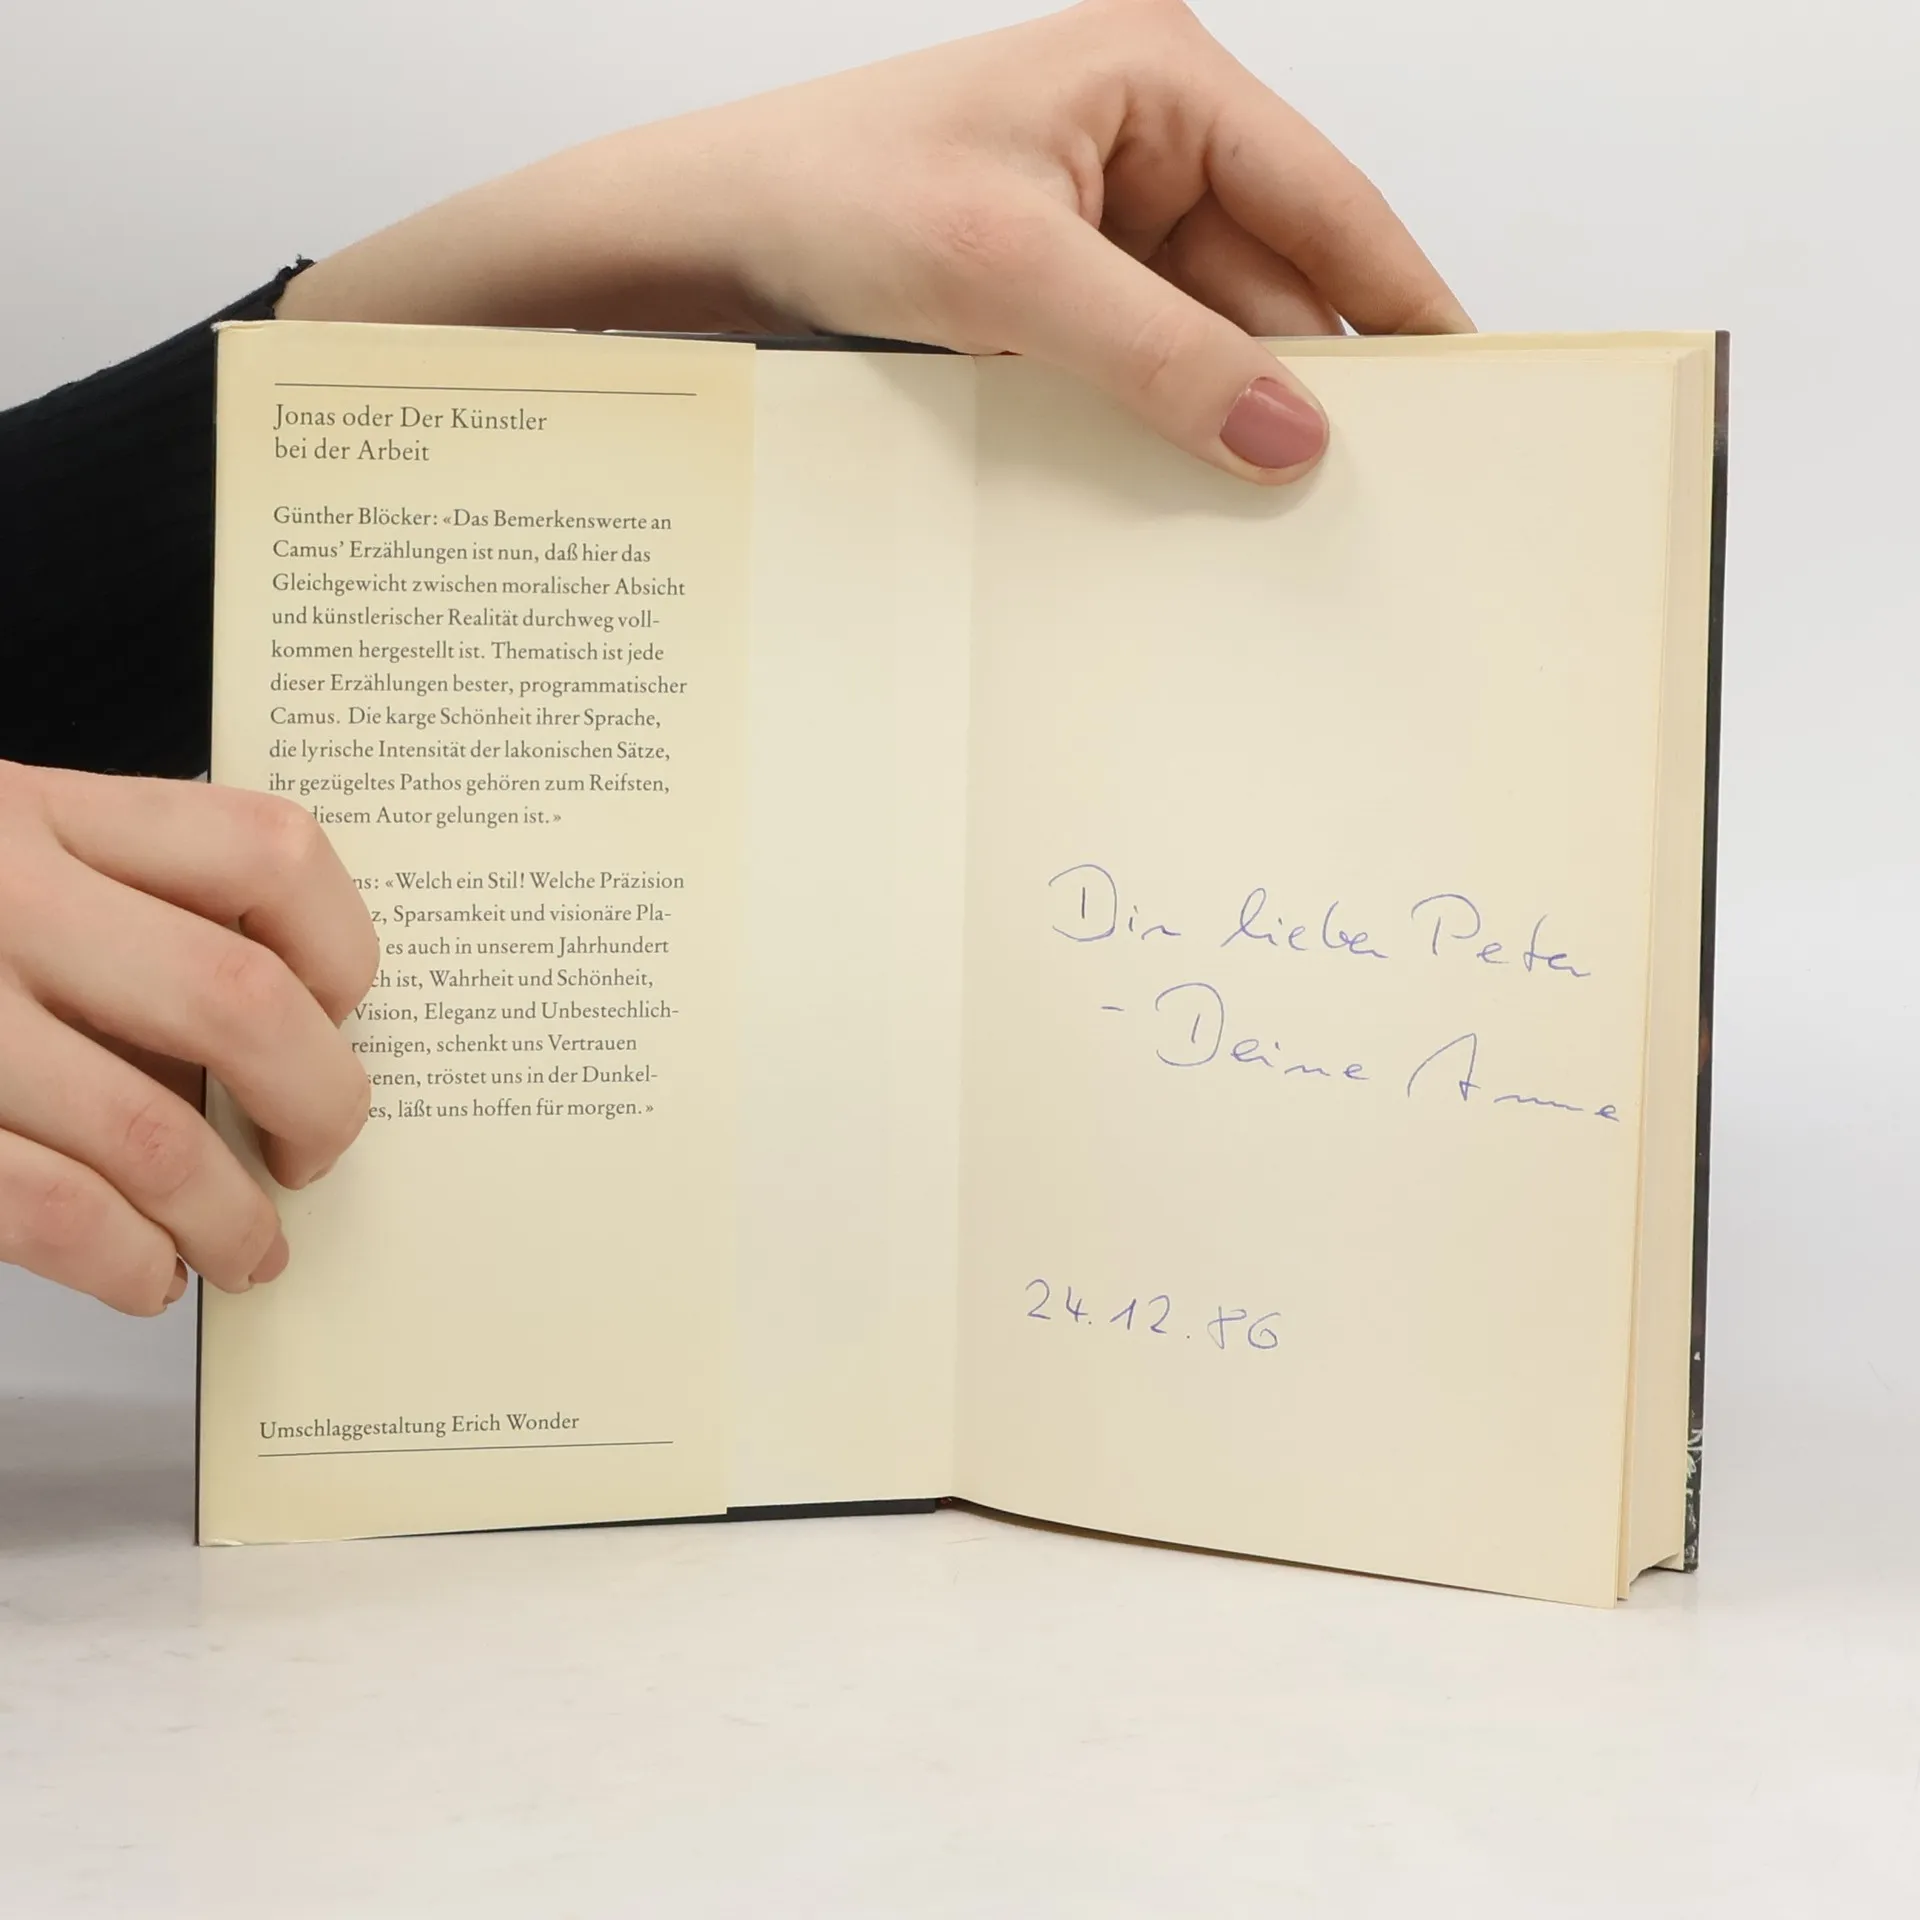 Jonas oder Der Künstler
bei der Arbeit
Günther Blöcker: «Das Bemerkenswerte an
Camus’ Erzählungen ist nun, daß hier das
Gleichgewicht zwischen moralischer Absicht
und künstlerischer Realität durchweg voll-
kommen hergestellt ist. Thematisch ist jede
dieser Erzählungen bester, programmatischer
Camus. Die karge Schönheit ihrer Sprache,
die lyrische Intensität der lakonischen Sätze,
ihr gezügeltes Pathos gehören zum Reifsten,
diesem Autor gelungen ist.»
«Welch ein Stil! Welche Präzision
Sparsamkeit und visionäre Pla-
es auch in unserem Jahrhundert
ist, Wahrheit und Schönheit,
Vision, Eleganz und Unbestechlich-
schenkt uns Vertrauen
tröstet uns in der Dunkel-
läßt uns hoffen für morgen.»
Umschlaggestaltung Erich Wonder
Dir lieber Peter
- Deine Anne
24.12.86